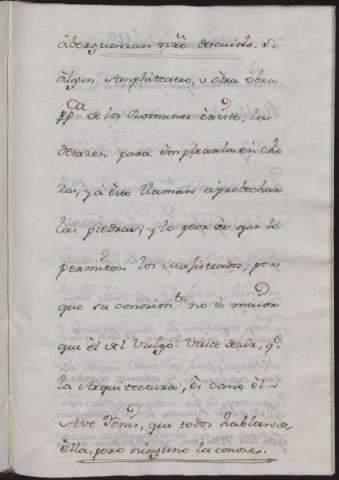 àberguenzan nr̃o descuido. Si
àlgun Amphiteatro, u òtra òbra
pp.ca de los Romanos èxiste, la
desazen para èmplearla èn cho
zas, y à èsto llaman àprobechar
las piedras; y lo peor ès que lo
permiten los Majistrados, por
que su conozim.to no ès maior
que èl del Vulgo. Vaste dezir, q.e
la Arquitectura, ès como èl
Ave Fenis, que todos hablan de
èlla, pero ninguno la conoze.